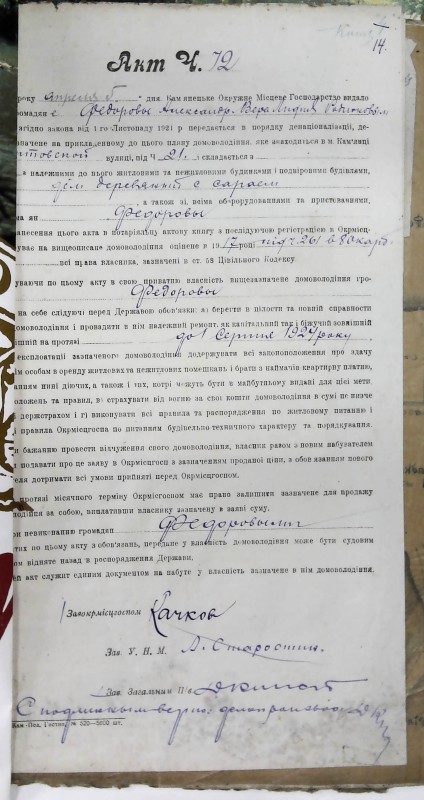 14.
Акт Ч. 72
року апреля 5. дня Кам'янецьке Окружне Місцеве Господарство видало
громадян Федоровы Александр, Вера, Лидия
згідно закона від 1-го Листопаду 1921 р передається в порядку денаціоналізації, де-
значене на прикладеному до цього пляну домоволодіння, яке знаходиться в м. Кам'янці
вулиці, під Ч 21. і складається з
з належними до нього житловими та нежитловими будинками і подвірними будівлями,
дом деревянный с сараем
а також зі, всіма оборудованнями та пристованнями,
Федоровы
занесення цього акта в нотаріяльну актову книгу з послідуючою регістрацією в Окрмісц-
на вищеописане домоволодіння оцінене в 1917 році під ч 261 в 80 карб.
всі права власника, зазначені в ст. 58 Цівільного Кодексу.
уваючи по цьому акту в свою приватну власність вищезазначене домоволодіння гро-
Федоровы
на себе слідуючі перед Державою обов'язки: а) берегти в цілости та повній справности
домоволодіння і провадити в нім належний ремонт, як капітальний так і біжучий зовнішній
на протязі до 1 Серпня 1924 року
експлоатації зазначеного домоволодіння додержувати всі законоположення про здачу
особам в оренду житлових та нежитлових помешкань і брати з наймачів квартирну платню,
нині діючих, а також і тих, котрі можуть бути в майбутньому видані для цієї мети
положень та правил, в) страхувати від вогню за свої кошти домоволодіння в сумі не нижче
держстрахом і г) виконувати всі правила та распорядження по житловому питанню і
правила Окрмісгоспа по питанням будівельно-технічного характеру та порядкування.
бажанню провести відчуження свого домоволодіння, власник разом з новим набувателем
подавати про це заяву в Окрмісгосп з зазначенням проданої ціни, з обов'язанням нового
дотримати всі умови прийняті перед Окрмісгоспом.
протязі місячного терміну Окрмісгосп має право залишити зазначене для продажу
за собою, виплативши власнику зазначену в заяві суму.
невиконанню громадян Федоровыми
по цьому акту з обов'язань, передане у власність домоволодіння може бути судовим
відняте назад в распорідження Держави.
акт служит єдиним документом на набуте у власність зазначене в нім домоволодіння.
Завокрмісцгоспом Качков
Зав. У. Н. М. Л. Старостин.
Зав. Загальним П/в
С подлинным верно: делопроизвод
Кам-Под. Госпів. № 520—5000 шт.